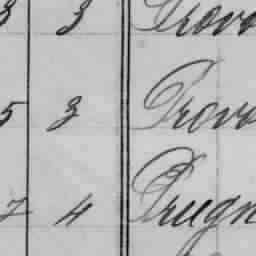 3 3 Provo
5 3 Provo
7 4 Prugn